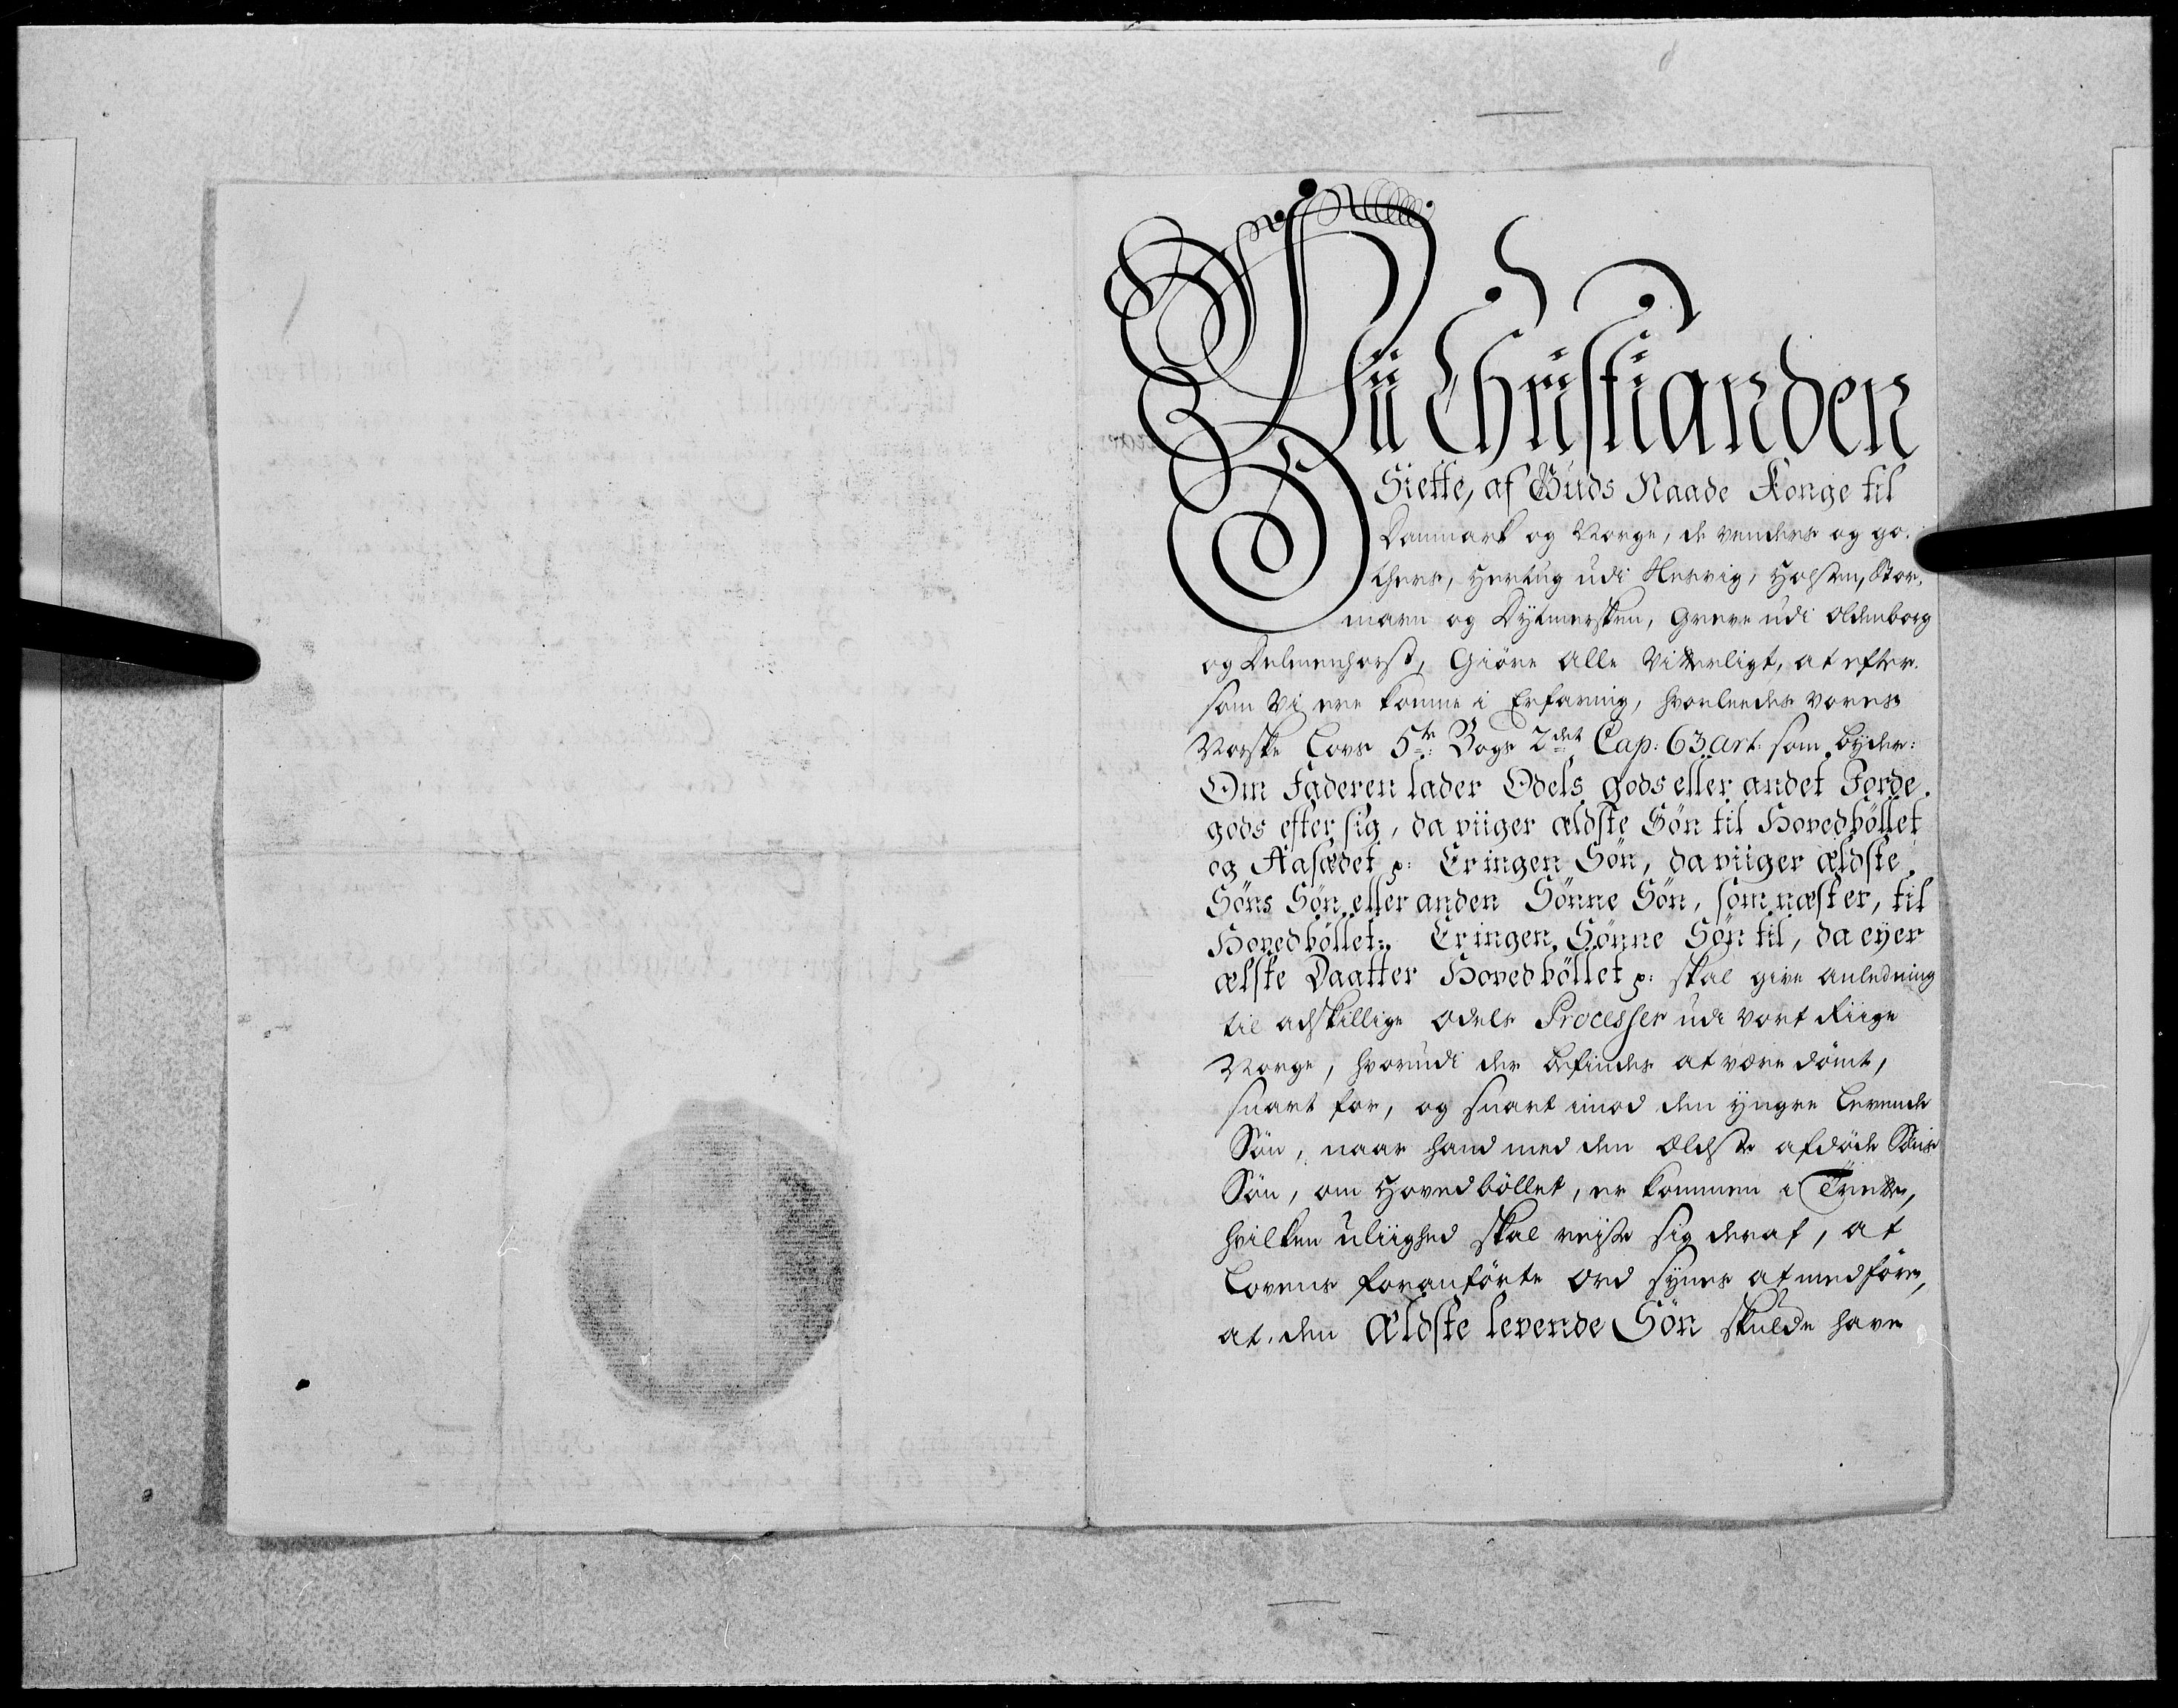 Vii Christian den
Siette, af Guds Naade Konge til
Danmark og Norge, de venders og go-
thers, Hertug udi Slesvig, Holsten, Stor-
marn og Dytmersken, Greve udi Oldenborg
og Delmenhorst, Giöre alle Vitterligt, at efter-
som Vi ere komne i Erfaring, hvorleedes vores
Norske Lovs 5te: Bogs 2det Cap: 63 art: som byder:
Om Faderen lader Odels gods eller andet Jorde-
gods efter sig, da viiger ældste Sön til Hovedböllet
og Aasædet p: Er ingen Sön, da viiger ældste
Söns Sön eller anden Sönne Sön, som næst er, til
Hovedböllet: Er ingen Sönne Sön til, da eyer
ælste Daatter Hovedböllet p: skal give anledning
til adskillige Odels Processer udi vort Riige
Norge, hvorudi der befindes at være dömt,
snart for, og snart imod den yngre levende
Sön, naar hand med den Ældste afdöde Söns
Sön, om Hovedböllet, er kommen i Trette,
hvilken uliighed skal reyse sig deraf, at
Lovens foranförte Ord synes at medföre,
at den Ældste levende Sön skulde have